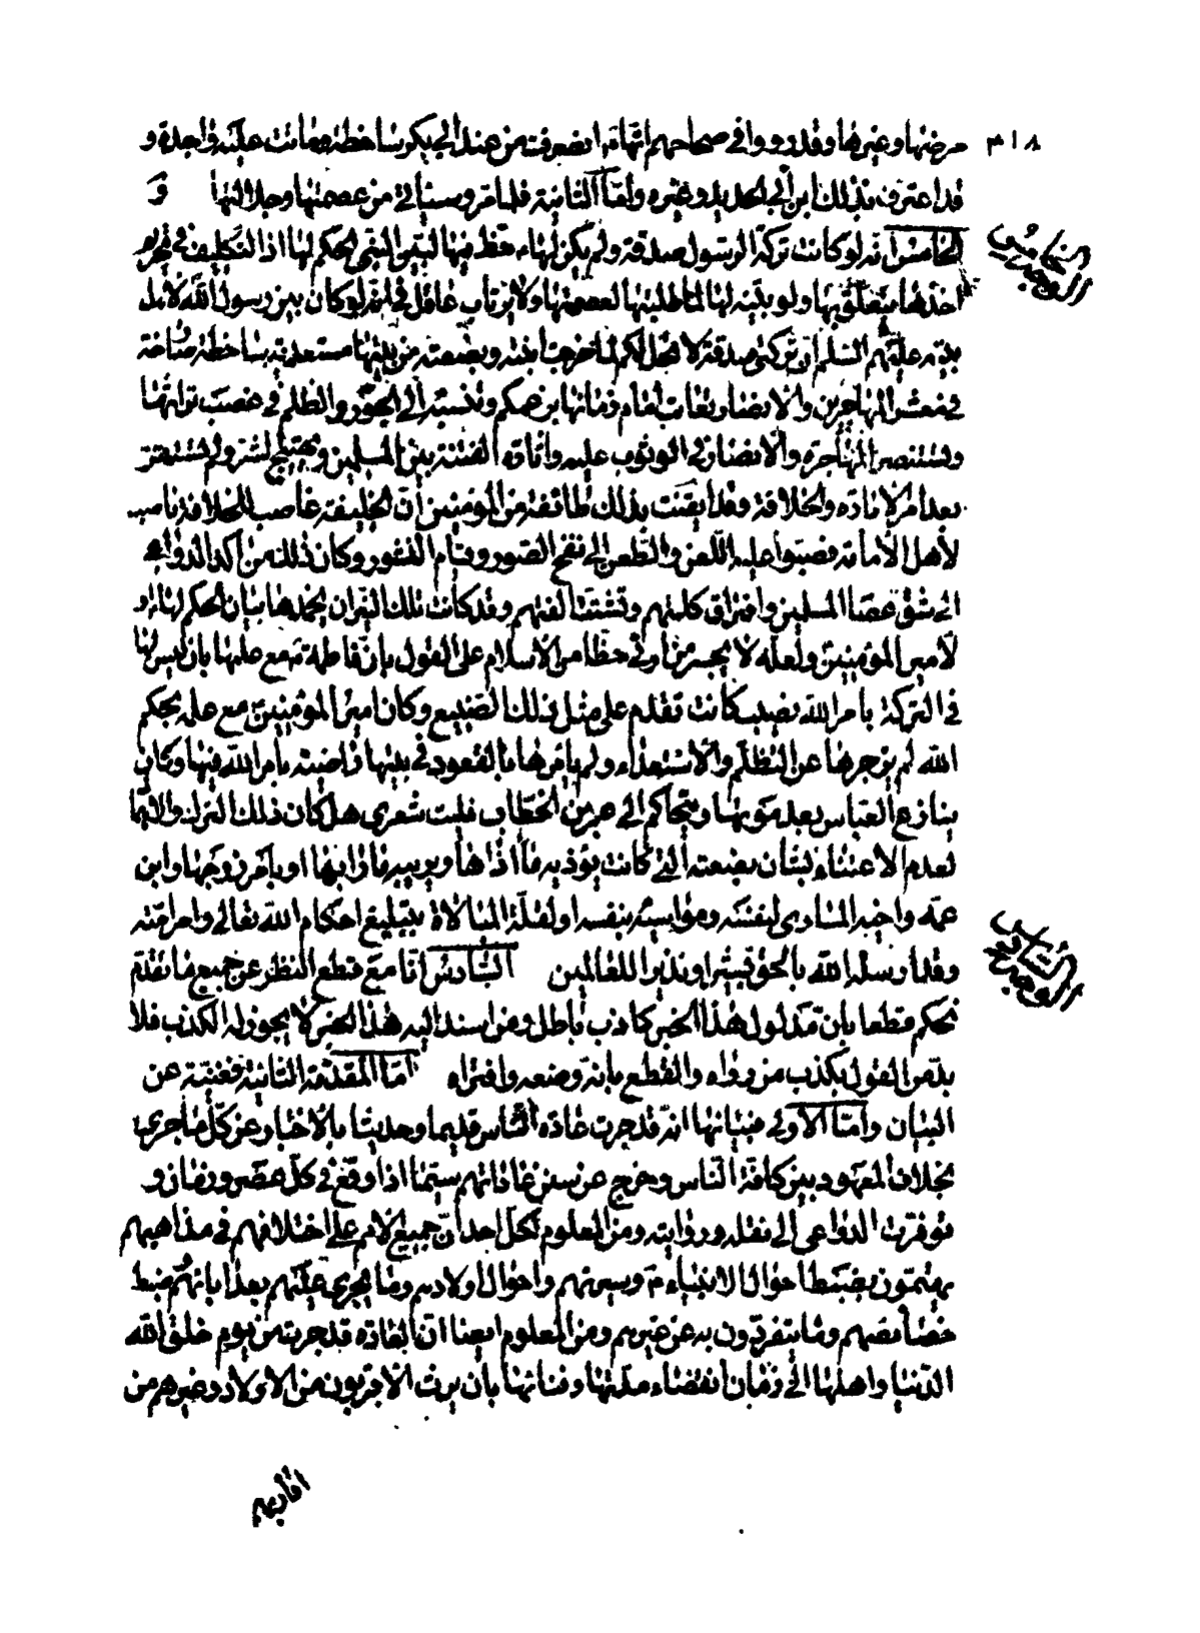 ٣١٨
مرضها وغيرها وقد رووا في صحاحهم انها ع انصرفت من عند ابي بكر ساخطة وماتت عليه واجدة و
قد اعترف بذلك ابن أبي الحديد وغيره وأما الثانية فلما مر وسيأتي من عصمتها وجلالتها و
الخامس انه لو كانت تركة الرسول صدقة ولم يكن لها ع حظ فيها لبين النبي الحكم لها اذ التكليف في تحريم
اخذها يتعلق بها ولو بينه لها لما طلبتها لعصمتها ولا يرتاب عاقل في انه لو كان بين رسول الله لأهل
بيته عليهم السلم ان تركتي صدقة لا تحل لكم لما خرجت ابنته وبضعته من بيتها مستعدية ساخطة صارخة
في معشر المهاجرين والانصار تعاتب امام زمانها بزعمكم وتنسبه الى الجور والظلم في غصب تراثها
وتستنصر المهاجرة والانصار في الوثوب عليه واثارة الفتنة بين المسلمين وتهييج الشر ولم تستقر
بعد امر الامارة والخلافة وقد ايقنت بذلك طائفة من المؤمنين أن الخليفة غاصب للخلافة ناصب
لأهل الأمامة فصبوا عليه اللعن والطعن الى نفخ الصور وقيام النشور وكان ذلك من آكد الدواعي
الى شق عصا المسلمين وافتراق كلمتهم وتشتت الفتهم وقد كانت تلك النيران يخمدها بيان الحكم لها ع او
لأمير المؤمنين ولعله لا يجسر من أوتي حظا من الاسلام على القول بان فاطمة ع مع علمها بان ليس لها
في التركة بأمر الله نصيب كانت تقدم على مثل ذلك الصنيع وكان امير المؤمنين مع علمه بحكم
الله لم يزجرها عن التظلم والاستعداء ولم يأمرها بالقعود في بيتها راضية بأمر الله فيها وكان
ينازع العباس بعد موتها ويتحاكم الى عمر بن الخطاب فليت شعري هل كان ذلك الترك والاهمال
لعدم الاعتناء بشان بضعته التي كانت يؤذيه ما آذاها ويريبه ما رابها او بامر زوجها وابن
عمه واخيه المساوى لنفسه ومواسيه بنفسه او لقلة المبالاة بتبليغ احكام الله تعالى وامر امته
وقد ارسله الله بالحق بشيرا ونذيرا للعالمين السادس انا مع قطع النظر عن جميع ما تقدم
نحكم قطعا بان مدلول هذا الخبر كاذب باطل ومن اسند اليه هذا الخبر لا يجوز له الكذب فلا
بد من القول بكذب من رواه والقطع بانه وضعه وافتراه اما المقدمة الثانية فغنية عن
البيان وأما الأولى فبيانها انه قد جرت عادة الناس قديما وحديثا بالاخبار عن كل ما جرى
بخلاف المعهود بين كافة الناس وخرج عن سنن عاداتهم سيما اذا وقع في كل عصر وزمان و
توفرت الدواعى الى نقله وروايته ومن المعلوم لكل احد ان جميع الامم على اختلافهم في مذاهبهم
يهتمون بضبط احوال الانبياء ع وسيرتهم واحوال اولادهم وما يجرى عليهم بعد آبائهم وضبط
خصائصهم وما يتفردون به عن غيرهم ومن المعلوم ايضا ان العادة قد جرت من يوم خلق الله
الدنيا واهلها الى زمان انقضاء مدتها وفنائها بان يرث الاقربون من الاولاد وغيرهم من
اقاربهم
الوجه الخامس
الوجه السادس